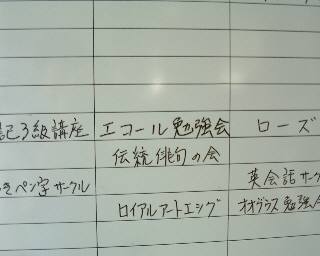 記3級講座
エコール勉強会
ローズ
伝統俳句の会
きペン字サークル
英会話サーク
ロイアルアートエシグ
オオグラス勉強会